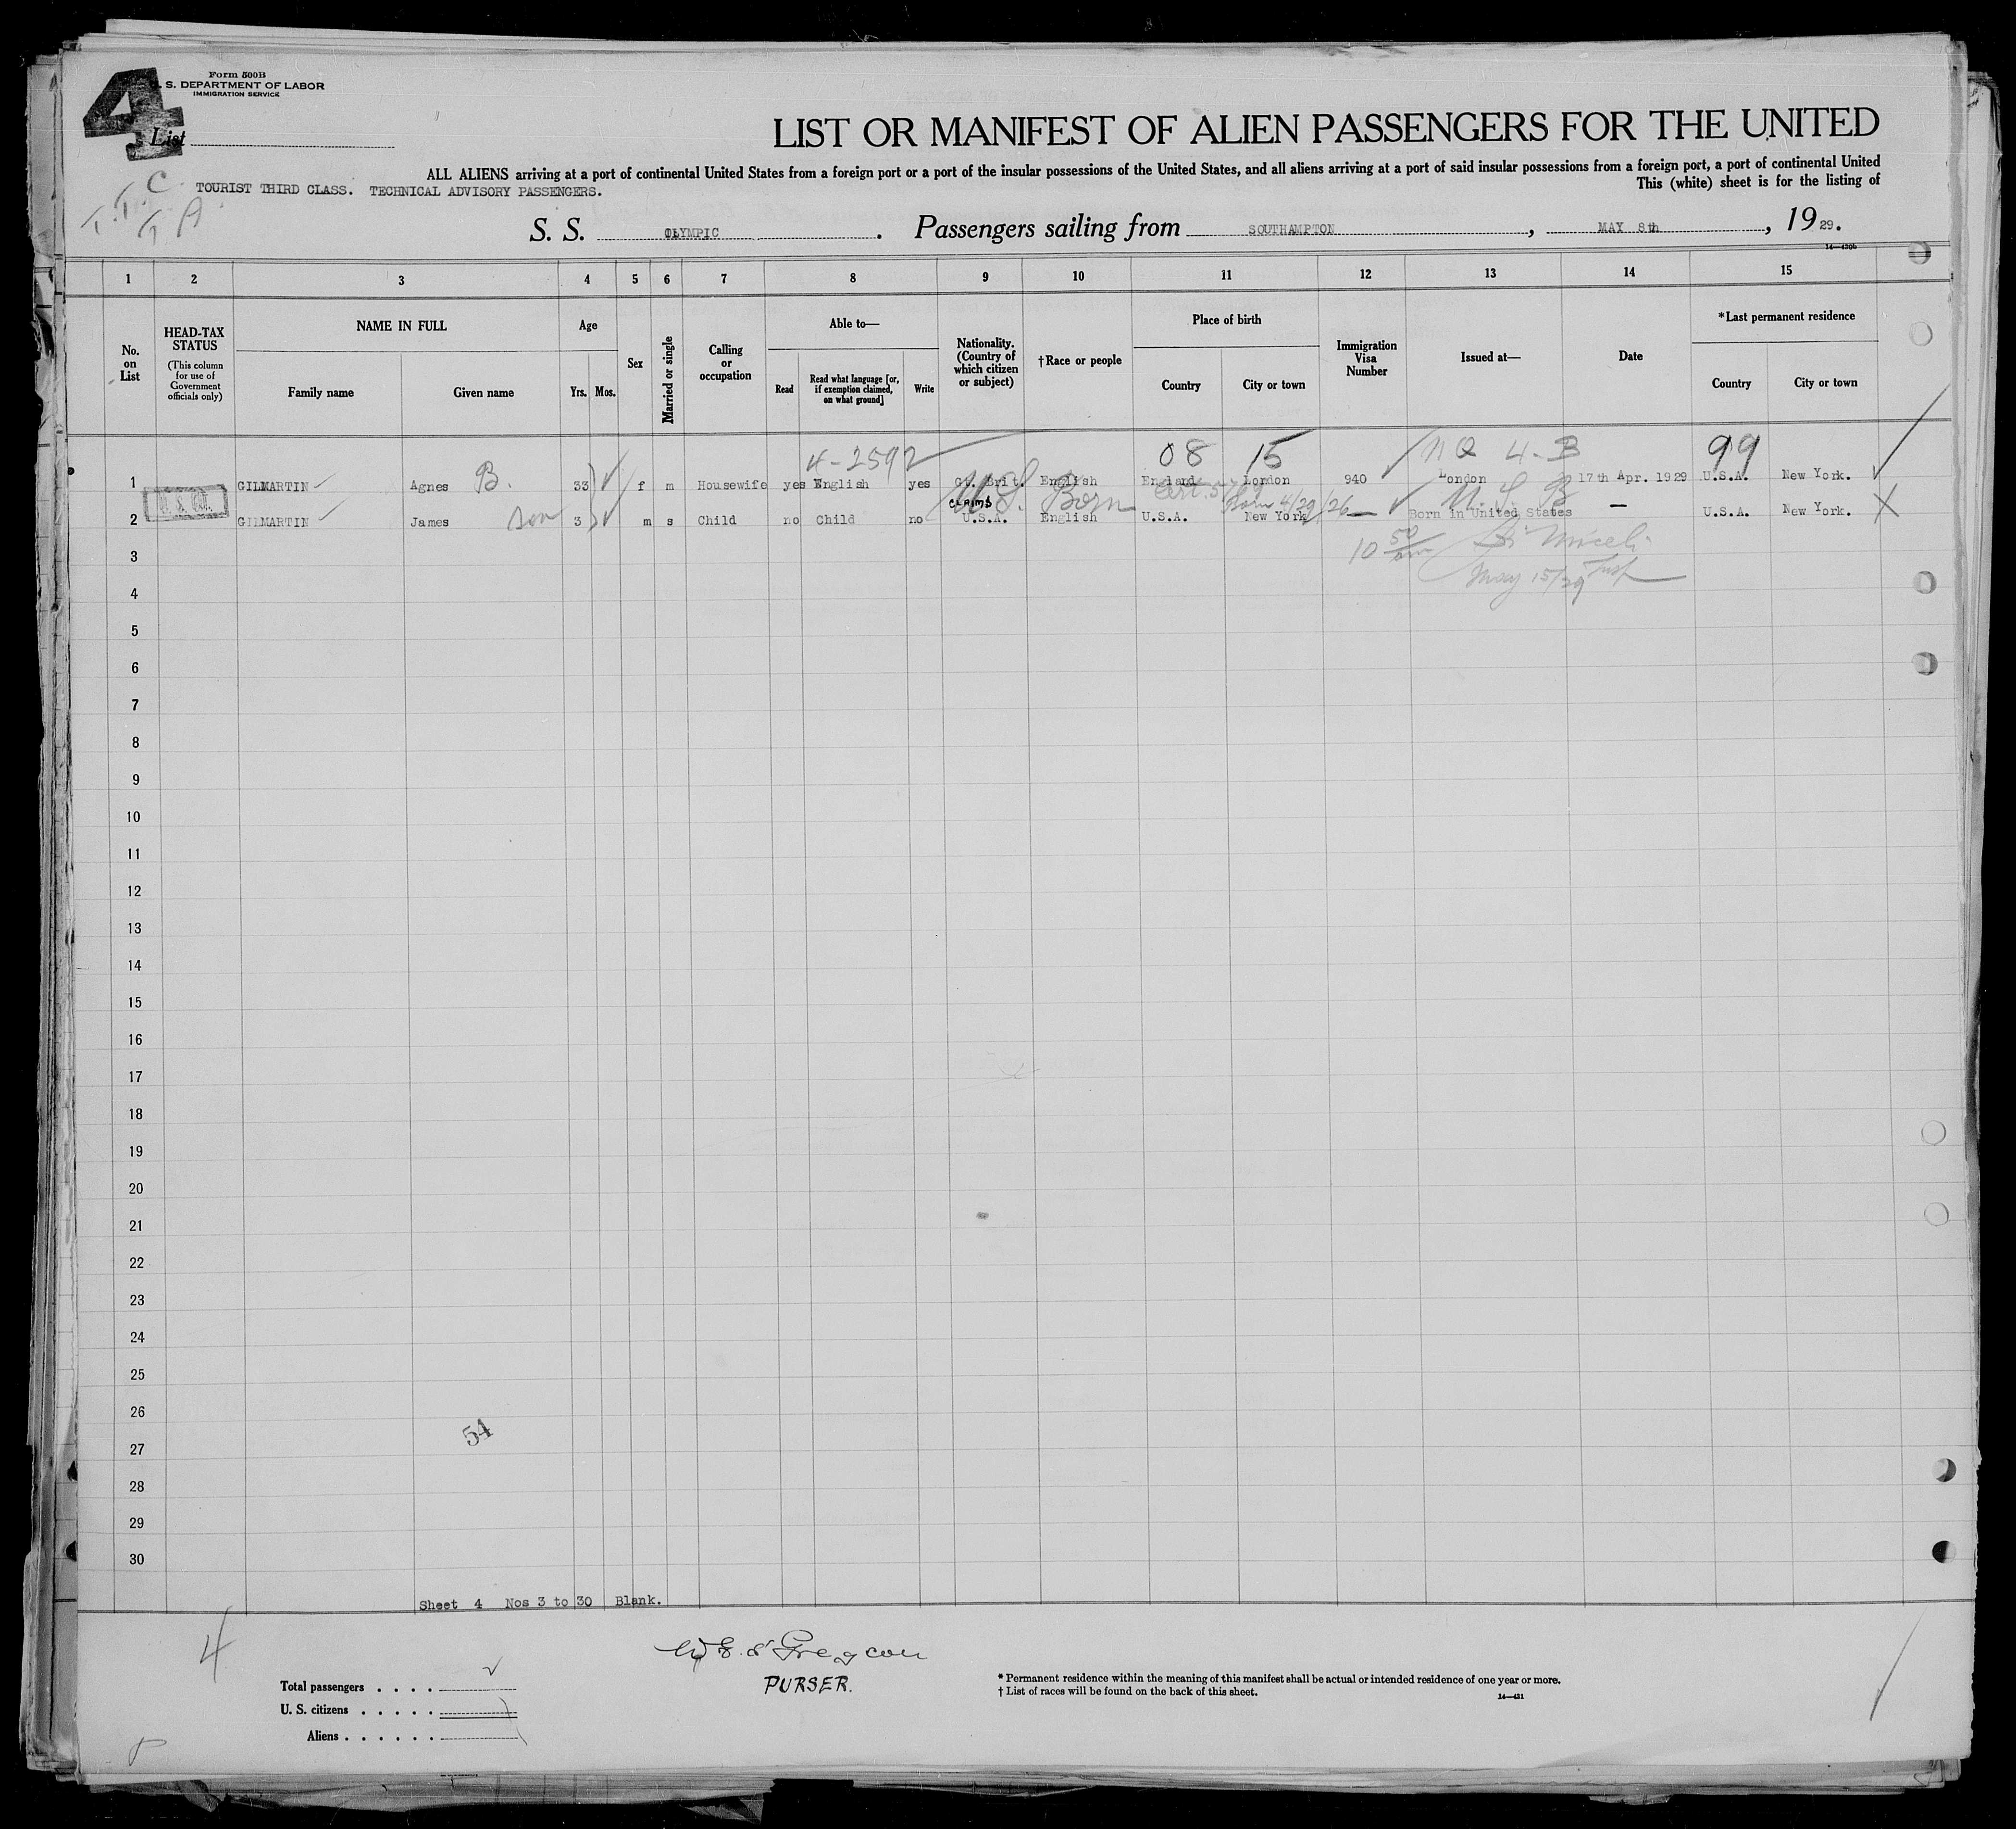 4
Form 500B
U. S. DEPARTMENT OF LABOR
IMMIGRATION SERVICE
List
LIST OR MANIFEST OF ALIEN PASSENGERS FOR THE UNITED
ALL ALIENS arriving at a port of continental United States from a foreign port or a port of the insular possessions of the United States, and all aliens arriving at a port of said insular possessions from a foreign port, a port of continental United
This (white) sheet is for the listing of
T.T.C. TOURIST THIRD CLASS. TECHNICAL ADVISORY PASSENGERS.
T A
S. S. OLYMPIC. Passengers sailing from SOUTHAMPTON, MAY 8th, 1929.
14—430b
1 2 3 4 5 6 7 8 9 10 11 12 13 14 15
No. on List
HEAD-TAX STATUS
(This column for use of Government officials only)
NAME IN FULL
Family name Given name
Age
Yrs. Mos.
Sex
Married or single
Calling or occupation
Able to—
Read Read what language [or, if exemption claimed, on what ground] Write
Nationality. (Country of which citizen or subject)
†Race or people
Place of birth
Country City or town
Immigration Visa Number
Issued at—
Date
*Last permanent residence
Country City or town
4-2592 08 15 NQ 4-B 99
1 GILMARTIN Agnes B. 33 f m Housewife yes English yes Gt. Brit. English England London 940 London 17th Apr. 1929 U.S.A. New York.
U.S. Born 4/29/26 U.S.B
claims
2 GILMARTIN James son 3 m s Child no Child no U.S.A. English U.S.A. New York — Born in United States — U.S.A. New York. X
3 10 50 am
4 May 15/29
5
6
7
8
9
10
11
12
13
14
15
16
17
18
19
20
21
22
23
24
25
26
54
27
28
29
30
Sheet 4 Nos 3 to 30 Blank.
4
PURSER.
Total passengers . . . .
U. S. citizens . . . . .
Aliens . . . . . .
* Permanent residence within the meaning of this manifest shall be actual or intended residence of one year or more.
† List of races will be found on the back of this sheet.
14—431